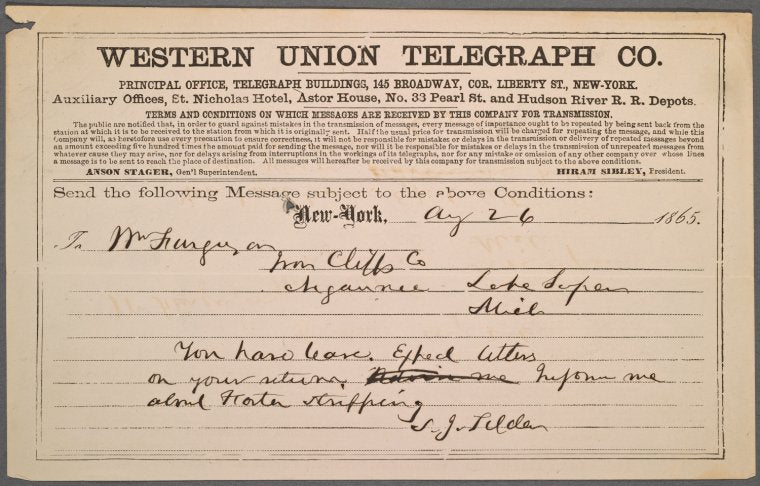 WESTERN UNION TELEGRAPH CO.
PRINCIPAL OFFICE, TELEGRAPH BUILDINGS, 145 BROADWAY, COR. LIBERTY ST., NEW-YORK.
Auxiliary Offices, St. Nicholas Hotel, Astor House, No. 33 Pearl St. and Hudson River R. R. Depots.
TERMS AND CONDITIONS ON WHICH MESSAGES ARE RECEIVED BY THIS COMPANY FOR TRANSMISSION.
The public are notified that, in order to guard against mistakes in the transmission of messages, every message of importance ought to be repeated by being sent back from the
station at which it is to be received to the station from which it is originally sent. Half the usual price for transmission will be charged for repeating the message, and while this
Company will, as heretofore use every precaution to ensure correctness, it will not be responsible for mistakes or delays in the transmission or delivery of repeated messages beyond
an amount exceeding five hundred times the amount paid for sending the message, nor will it be responsible for mistakes or delays in the transmission of unrepeated messages from
whatever cause they may arise, nor for delays arising from interruptions in the workings of its telegraphs, nor for any mistake or omission of any other company over whose lines
a message is to be sent to reach its place of destination. All messages will hereafter be received by this company for transmission subject to the above conditions.
ANSON STAGER, Gen'l Superintendent. HIRAM SIBLEY, President.
Send the following Message subject to the above Conditions:
New-York, Aug 26 1865.
To Wm Ferguson
Iron Cliffs Co
Negaunee Lake Super
Mich
You have leave. Expect letters
on your return. Advise me Inform me
about Foster stripping
S. J. Tilden